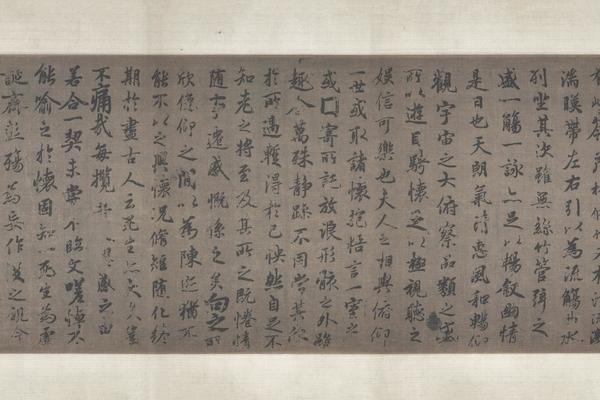 湍暎帶左右引以為流觴曲水
列坐其次雖無絲竹管弦之
盛一觴一詠亦足以暢敘幽情
是日也天朗氣清惠風和暢仰
觀宇宙之大俯察品類之盛
所以遊目騁懷足以極視聽之
娛信可樂也夫人之相與俯仰
一世或取諸懷抱悟言一室之
或寄所託放浪形骸之外雖
趣舍萬殊靜躁不同當其欣
於所遇暫得於己快然自足不
知老之將至及其所之既惓情
隨事遷感慨係之矣向之所
欣俛仰之間以為陳迹猶不
能不以之興懷況脩短隨化終
期於盡古人云死生亦大矣豈
不痛哉每攬昔人興感之由
若合一契未嘗不臨文嗟悼不
能喻之於懷固知一死生為虛
誕齊彭殤為妄作後之視今